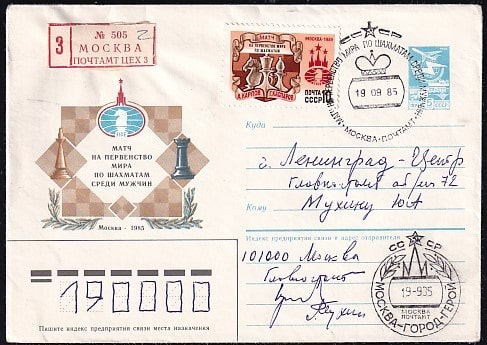 № 505
З МОСКВА
ПОЧТАМТ ЦЕХ 3
МАТЧ
НА ПЕРВЕНСТВО МИРА
ПО ШАХМАТАМ
МОСКВА-1985
А.КАРПОВ Г.КАСПАРОВ
ПОЧТА
СССР 10
МАТЧ НА ПЕРВЕНСТВО МИРА ПО ШАХМАТАМ СРЕДИ МУЖЧИН
19 09 85
МОСКВА-ПОЧТАМТ
МАТЧ
НА ПЕРВЕНСТВО
МИРА
ПО ШАХМАТАМ
СРЕДИ МУЖЧИН
Москва - 1985
Куда
г. Ленинград-Центр
Кому
Мухину Ю.А
Индекс предприятия связи и адрес отправителя
101000 Москва
Главпочтамт
190000
Пишите индекс предприятия связи места назначения
СС СР
19-9-85
МОСКВА
ПОЧТАМТ
МОСКВА-ГОРОД-ГЕРОЙ